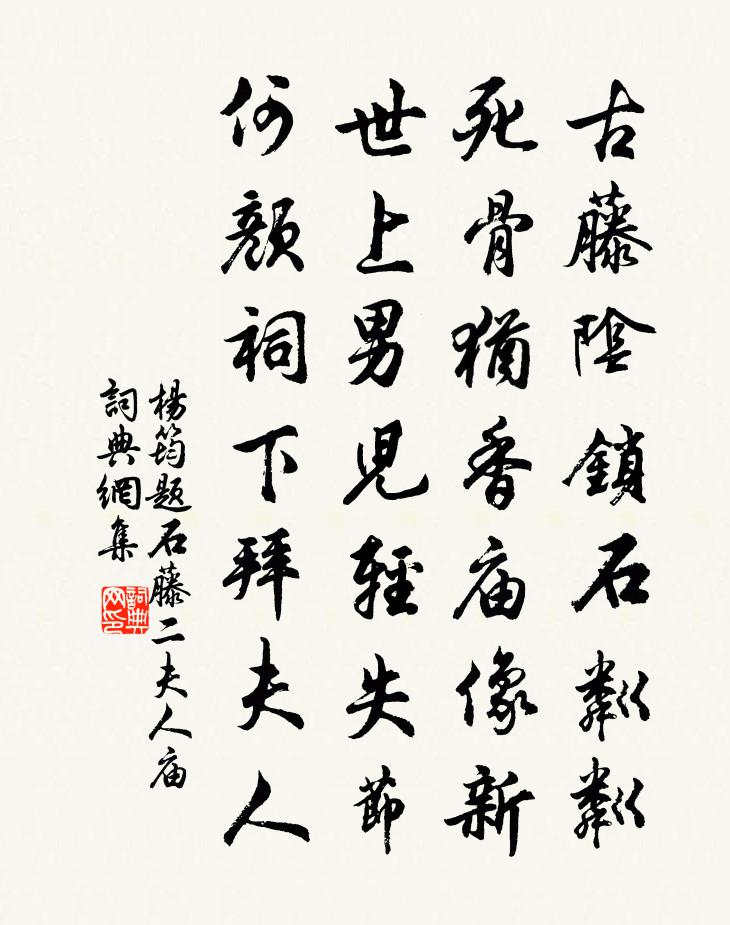 古藤陰鎖石粼粼
死骨猶香庙像新
世上男児輕失節
何顔祠下拜夫人
楊筠題石藤二夫人庙
詞典網集
詞典网印